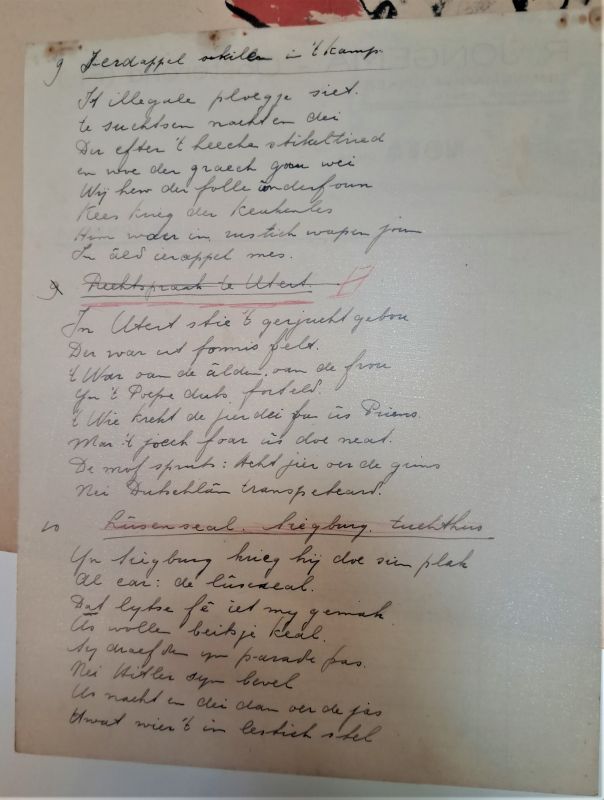 9 Ierdappel skille in 't kamp.
It illegale ploegje siet.
te suchtsen nacht en dei
Der efter 't heeche stikeltried
en woe der graech gau wei
Wij hew der folle ûnderfoun
Kees krieg der
Him waer in rustich wapen joun
In âld ierappel mes.
9 Rechtspraak te Utert. II
In Utert stie 't gerjucht gebou
Der war ut fonnis felt.
't War van de âlden, van de frou
Yn 't Poepe duts, forteld.
't Wie krekt de jierdei fan ús Priens
Mar 't joech foar ús doe neat.
De mof spruts: Acht jier oer de grins
Nei Dutschlân transpeteard.
10 Lûsenseal. Siegburg. tuchthus
Yn Siegburg krieg hij doe sien plak
Al ear: de lûsseal.
Dat lytse fé iet my gemak
As wollen beitsje keal.
Sy draefden yn parade pas.
Nei Hitler syn bevel
Us nacht en dei dan oer de jas
Hwat wier 't in lestich stel